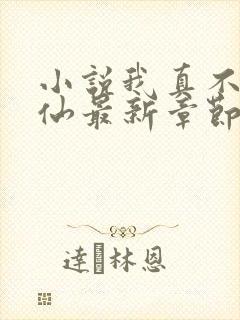 小説我真不
仙最新章節
達林恩